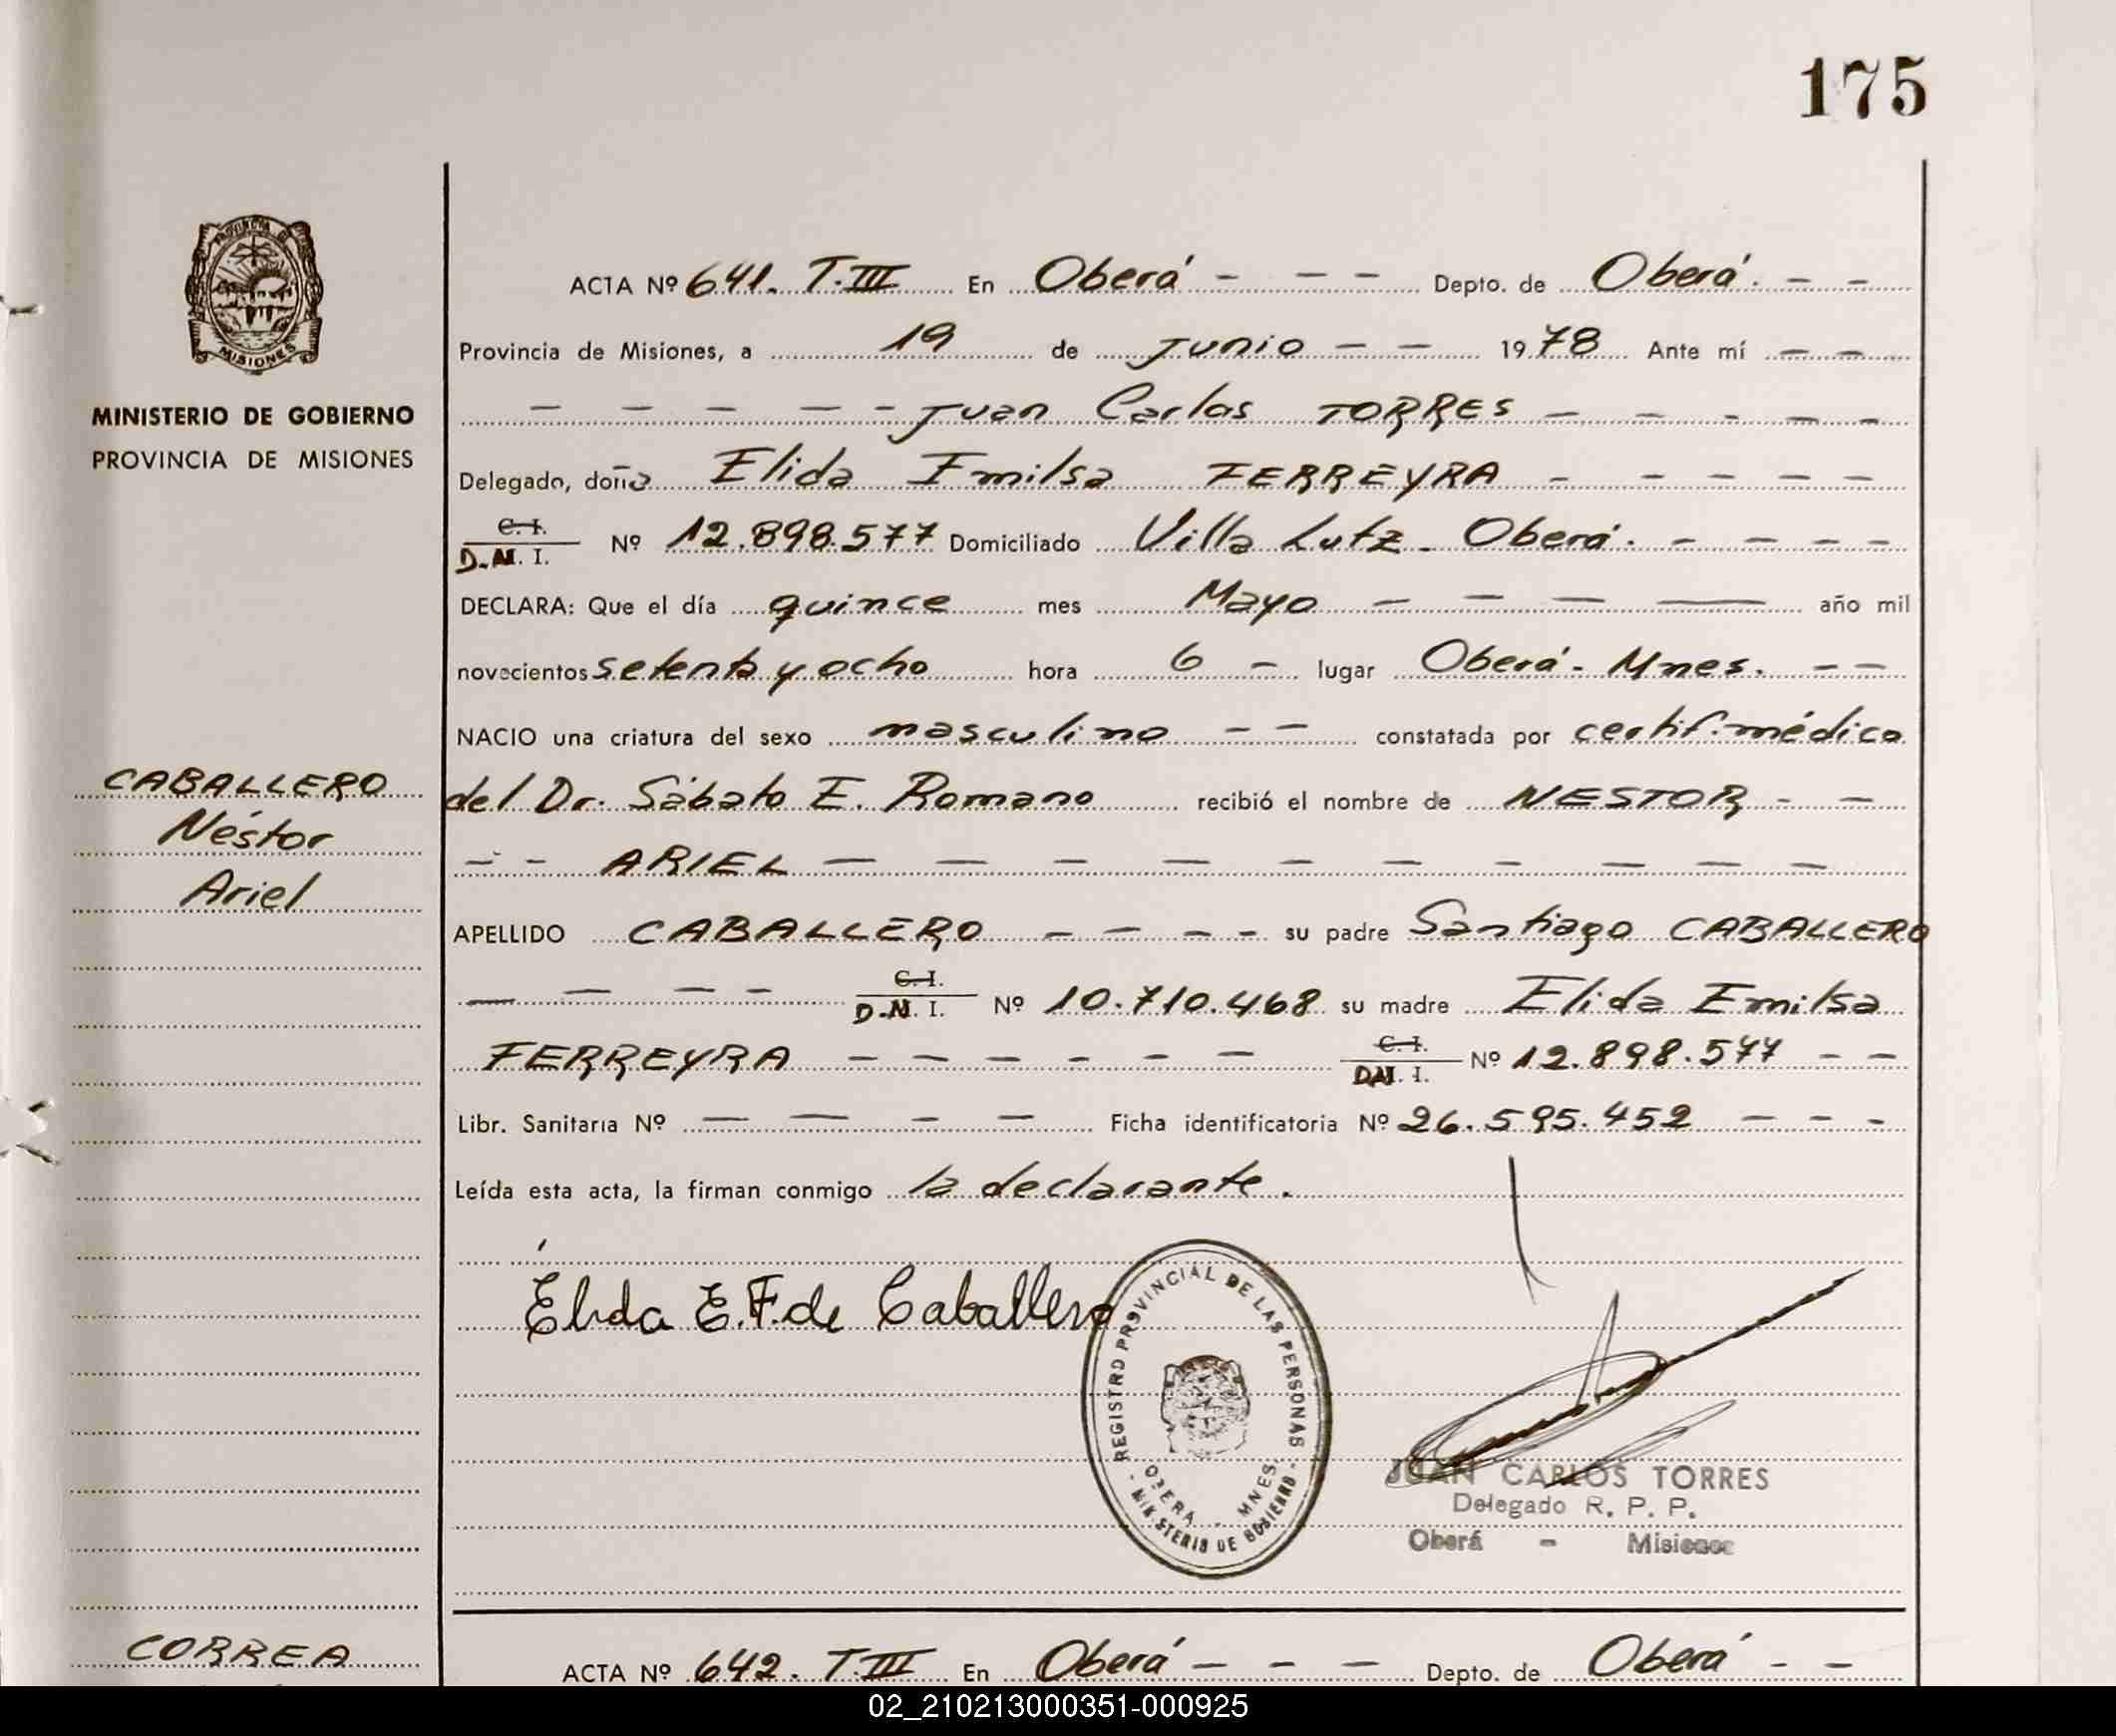 175
PROVINCIA DE
MISIONES
MINISTERIO DE GOBIERNO
PROVINCIA DE MISIONES
CABALLERO
Néstor
Ariel
ACTA Nº 641. T.III En Oberá - - - - Depto. de Oberá. - -
Provincia de Misiones, a 19 de junio - - 1978 Ante mí - -
- - - - - Juan Carlos TORRES - - - - -
Delegado, doña Elida Emilsa FERREYRA - - - - -
C. I.
D.N. I. Nº 12.898.577 Domiciliado Villa Lutz - Oberá. - - - -
DECLARA: Que el día quince mes Mayo - - - - año mil
novecientos setenta y ocho hora 6 - lugar Oberá - Mnes. - -
NACIO una criatura del sexo masculino - - constatada por certif. médico
del Dr. Sábato E. Romano recibió el nombre de NESTOR - -
- - ARIEL - - - - - - - - - -
APELLIDO CABALLERO - - - - su padre Santiago CABALLERO
- - - - C. I.
D.N. I. Nº 10.710.468 su madre Elida Emilsa
FERREYRA - - - - - - C. I.
DN. I. Nº 12.898.577 - -
Libr. Sanitaria Nº - - - - Ficha identificatoria Nº 26.595.452 - - -
Leída esta acta, la firman conmigo la declarante.
Elida E. F. de Caballero
REGISTRO PROVINCIAL DE LAS PERSONAS
OBERA - MNES.
- MINISTERIO DE GOBIERNO -
JUAN CARLOS TORRES
Delegado R. P. P.
Oberá - Misiones
CORREA
ACTA Nº 642. T.III En Oberá - - - - Depto. de Oberá - -
02_210213000351-000925